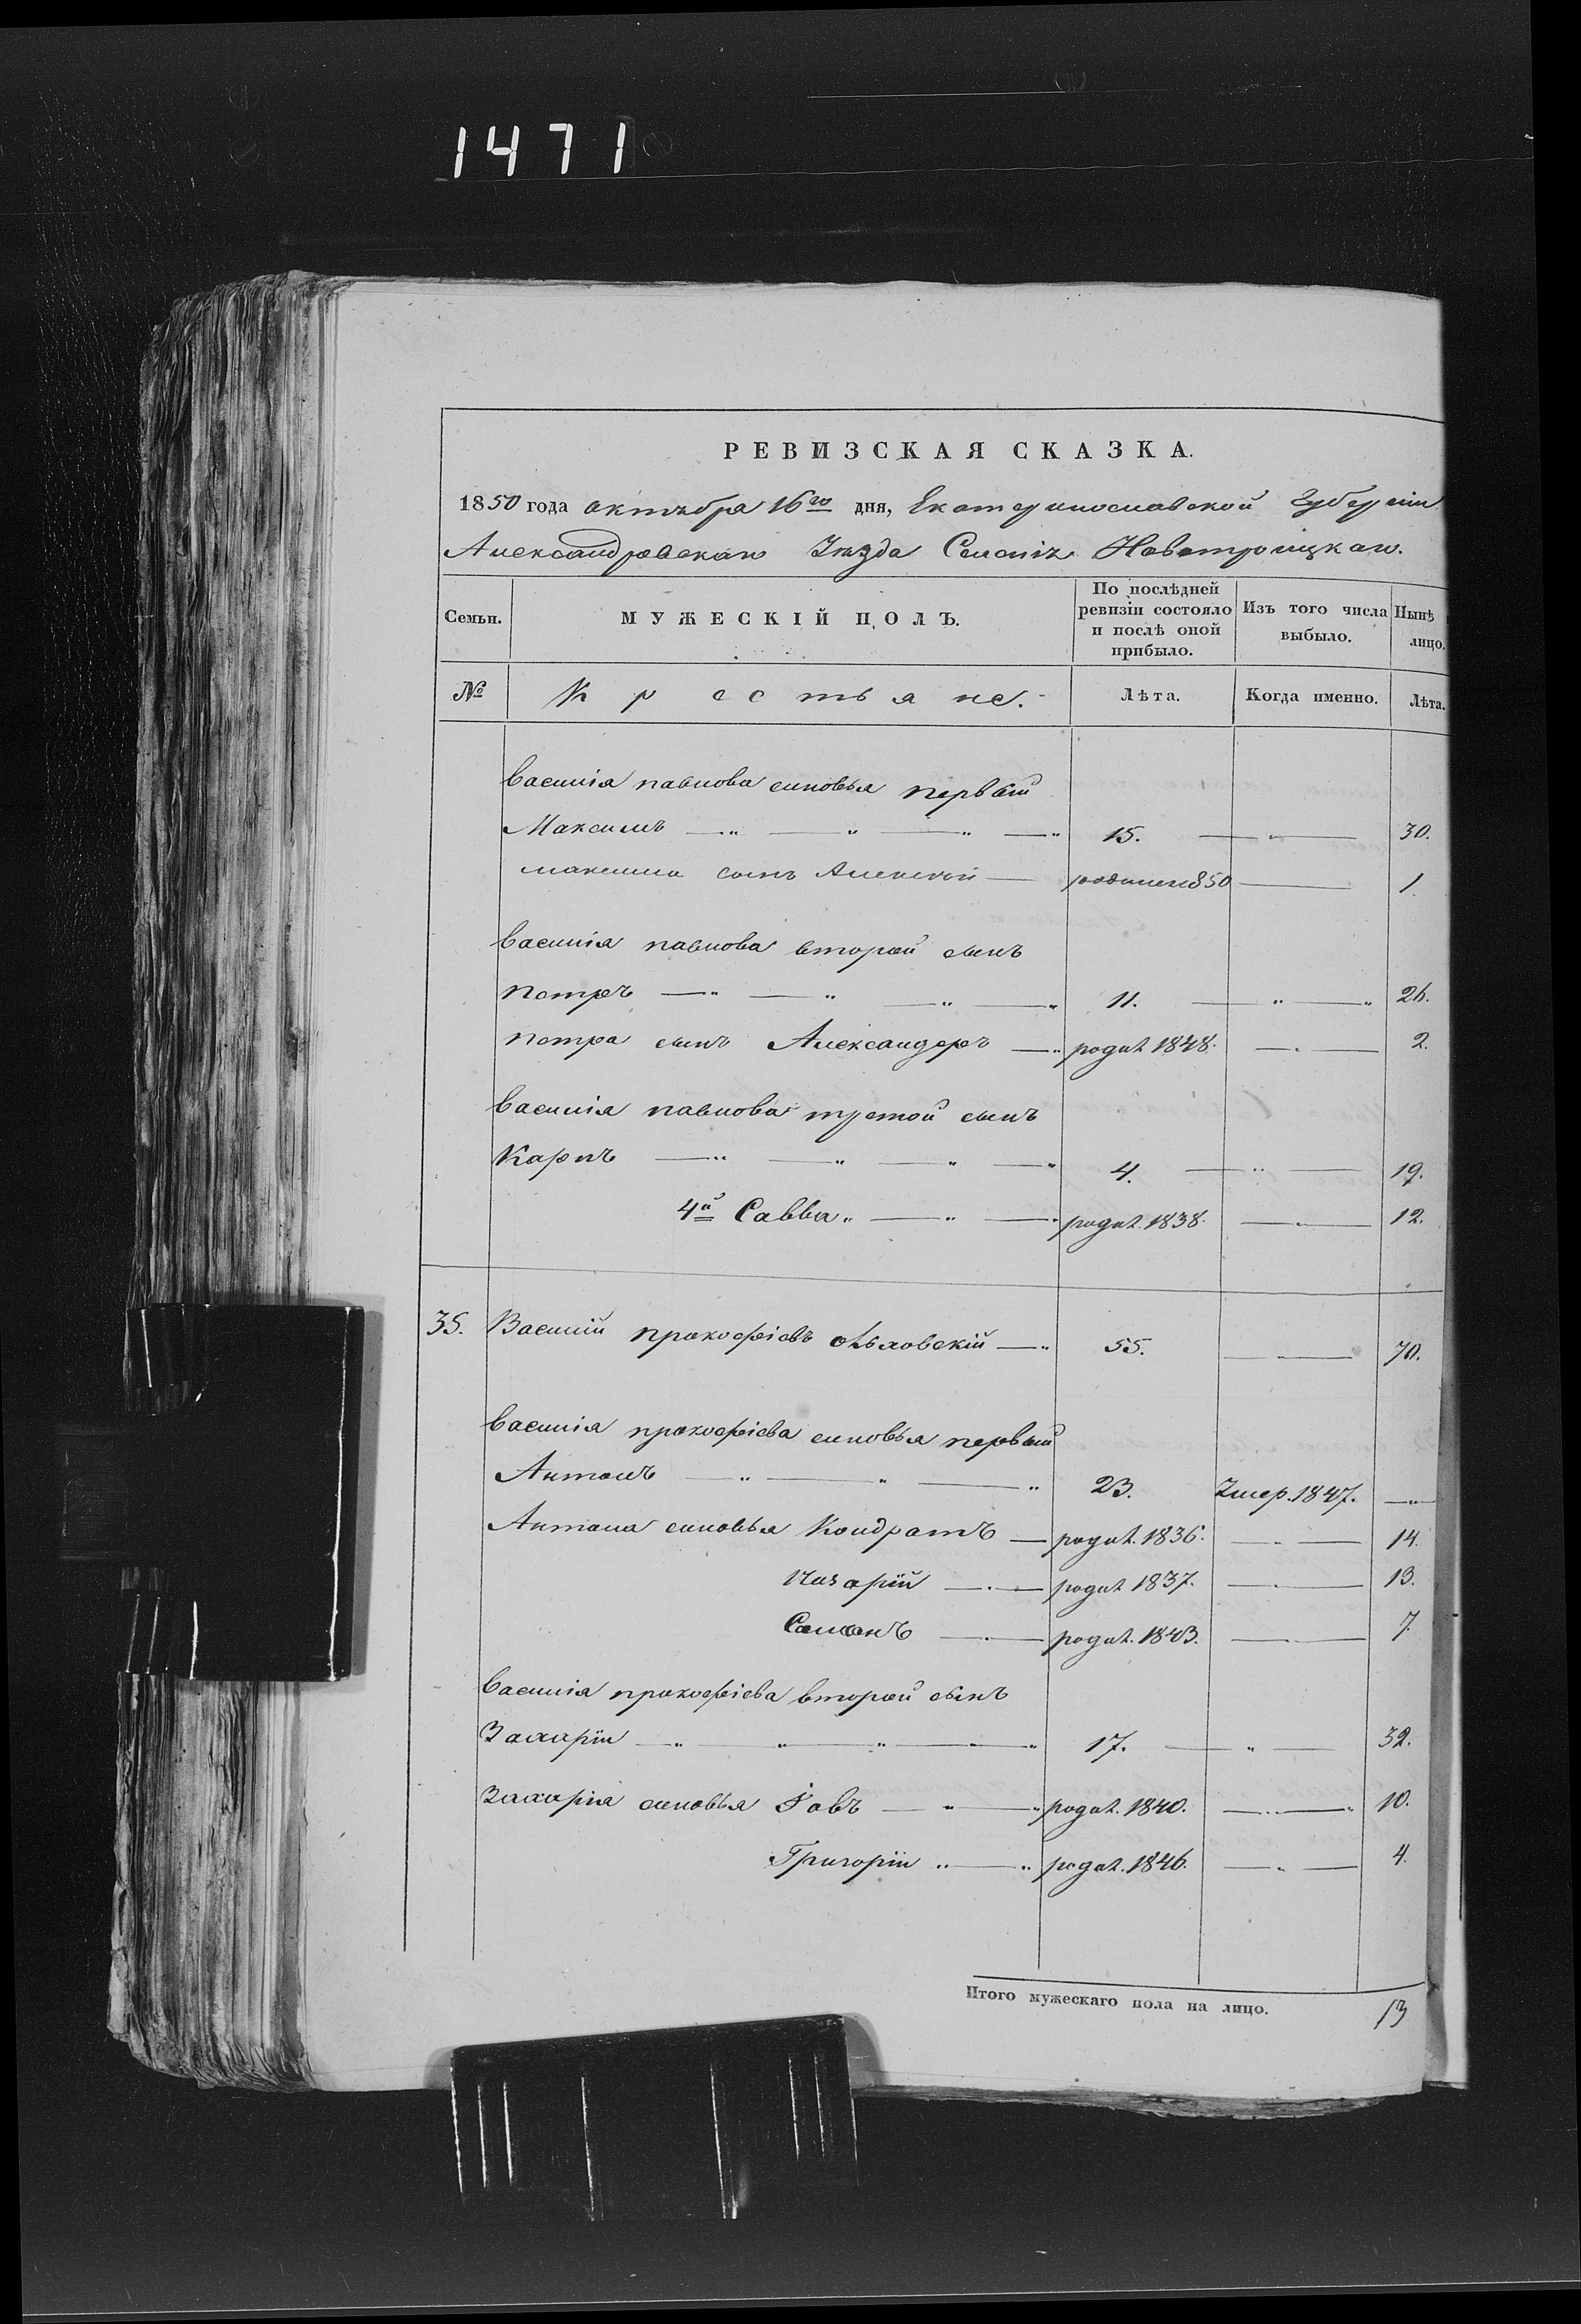 1471
РЕВИЗСКАЯ СКАЗКА.
1850 года октября 16го дня, Екатеринославской Губерніи
Александровскаго Уѣзда Новотроицкаго.
Семьи. МУЖЕСКІЙ ПОЛЪ. По послѣдней ревизіи состояло и послѣ оной прибыло. Изъ того числа выбыло. Нынѣ лицо.
№ Крестьяне. Лѣта. Когда именно. Лѣта.
Василія павлова сыновья первый
Максимъ 15. 30.
максима сынъ Алексей родился 1850 1.
Василія павлова второй сынъ
петръ 11. 26.
петра сынъ Александеръ родил. 1848. 2.
Василія павлова третой сынъ
Карпъ 4. 19.
4й Савва родил. 1838. 12.
35. Василій прокофіевъ ольховскій 55. 70.
Василія прокофіева сыновья первый
Антонъ 23. Умер. 1847.
Антона сыновья Кондратъ родил. 1836. 14.
Назарій родил. 1837. 13.
родил. 1843. 7.
Василія прокофіева второй сынъ
Захарій 17. 32.
Захарія сыновья Іовъ родил. 1840. 10.
Григорій родил. 1846. 4.
Итого мужескаго пола на лицо. 13